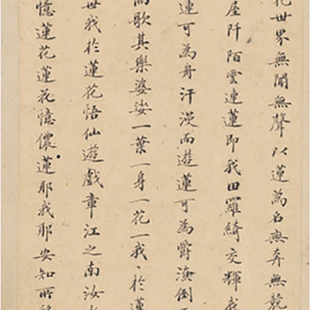 花世界無聞無聲以蓮為名無奔無競
屋阡陌雲連蓮即我田羅綺交輝我
蓮可為舟汗漫而遊蓮可為爵澹倒
而歌其樂婆娑一葉一身一花一我我於蓮
世我於蓮花悟仙遊戲章江之南汝水
憶蓮花蓮花憶儂蓮耶我耶安知所